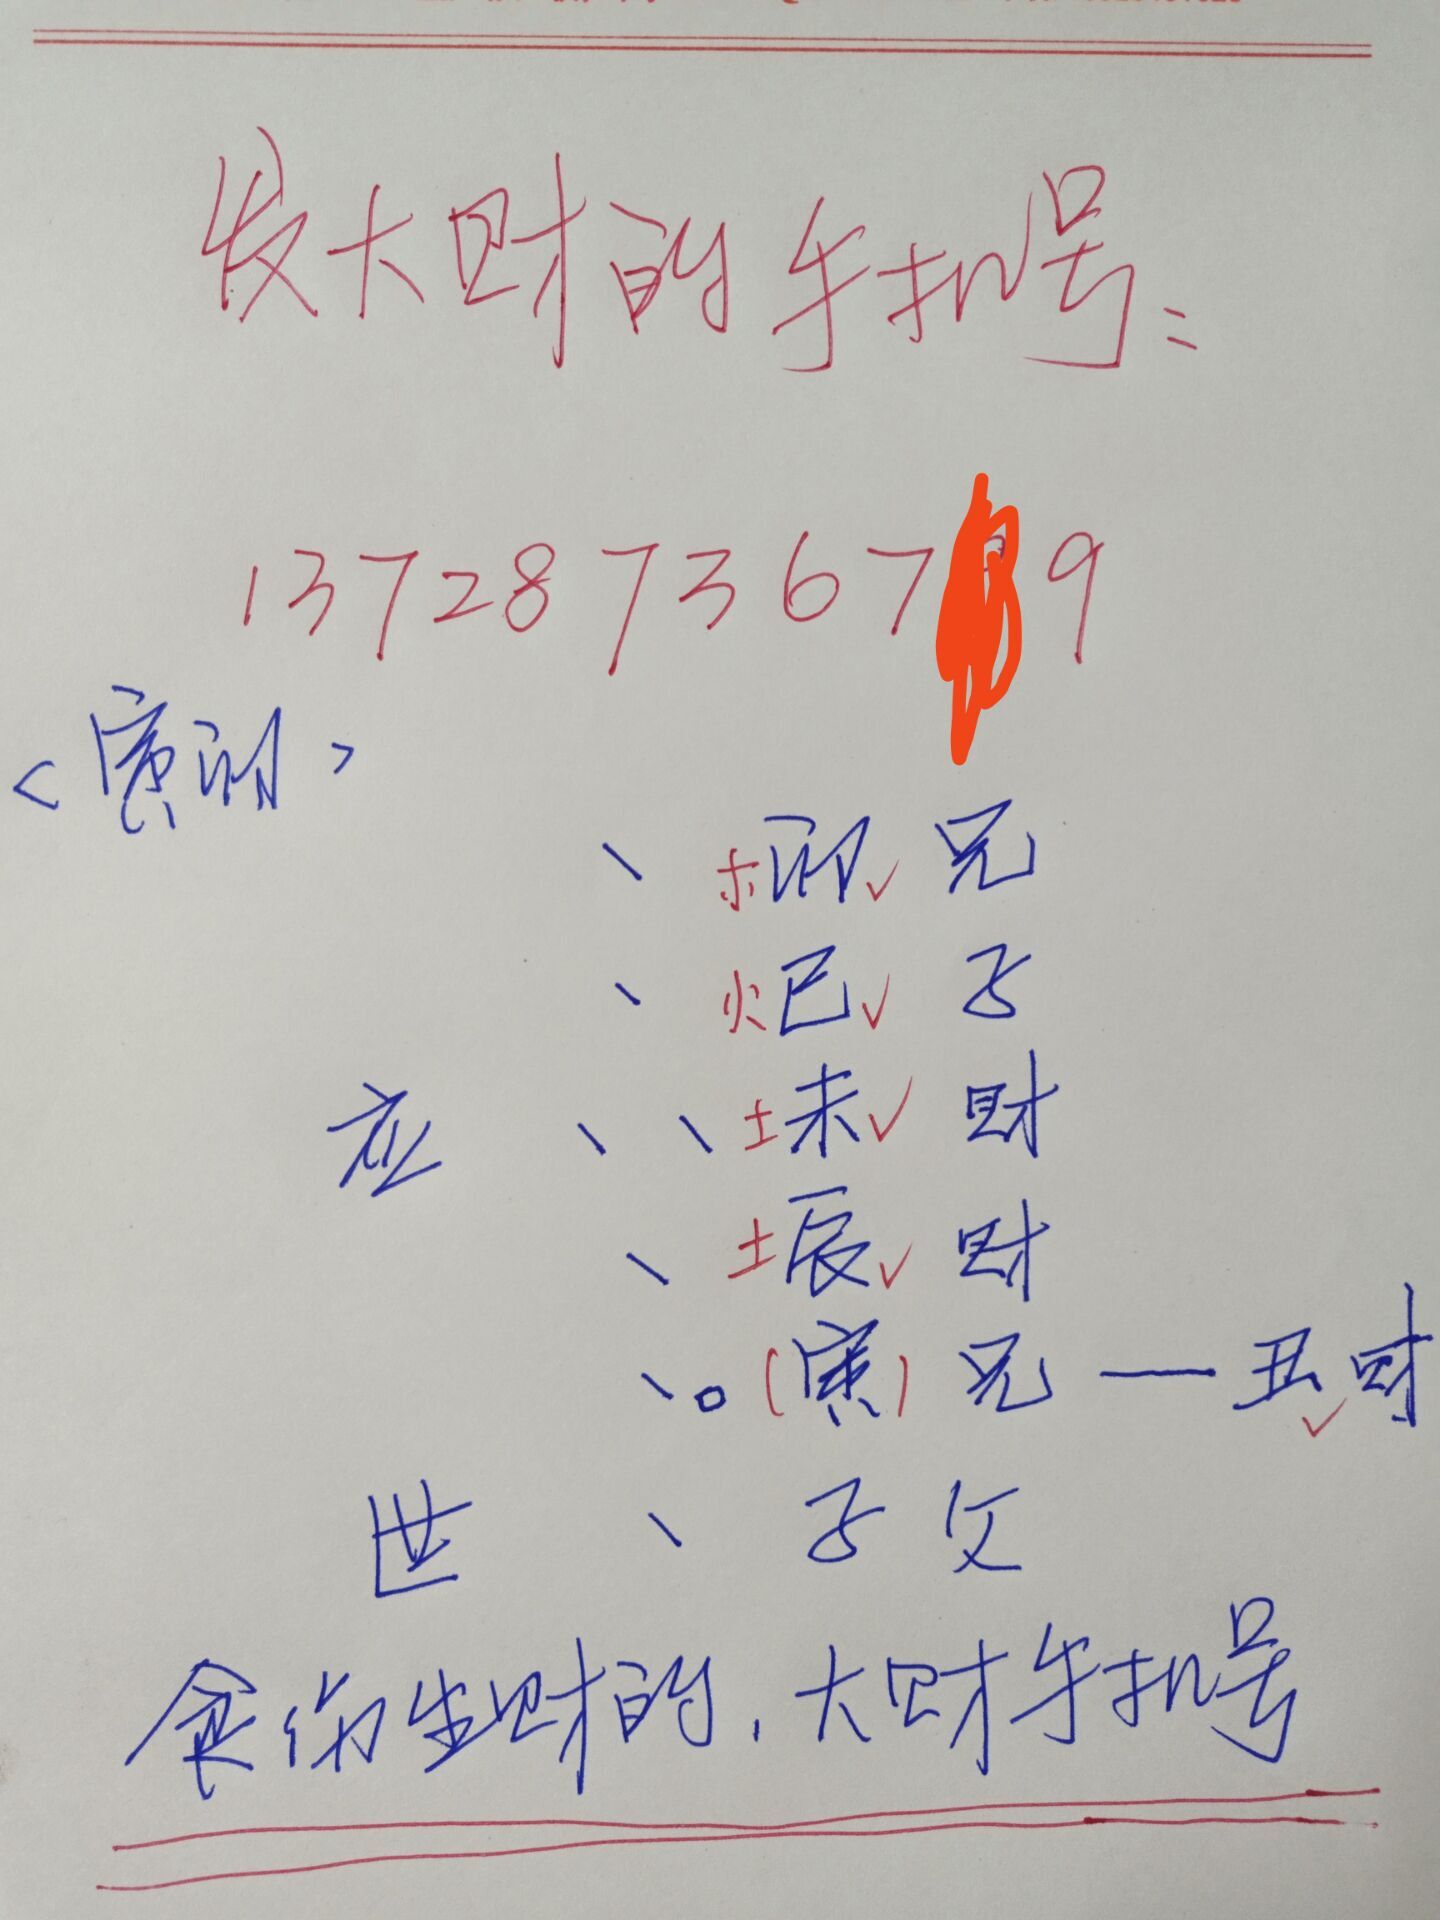 发大财的手机号:
137287367 9
<寅卯>
、 木卯✓ 兄
、 火巳✓ 子
应 、、 土未✓ 财
、 土辰✓ 财
、o (寅) 兄 — 丑✓财
世 、 子 父
食伤生财的,大财手机号